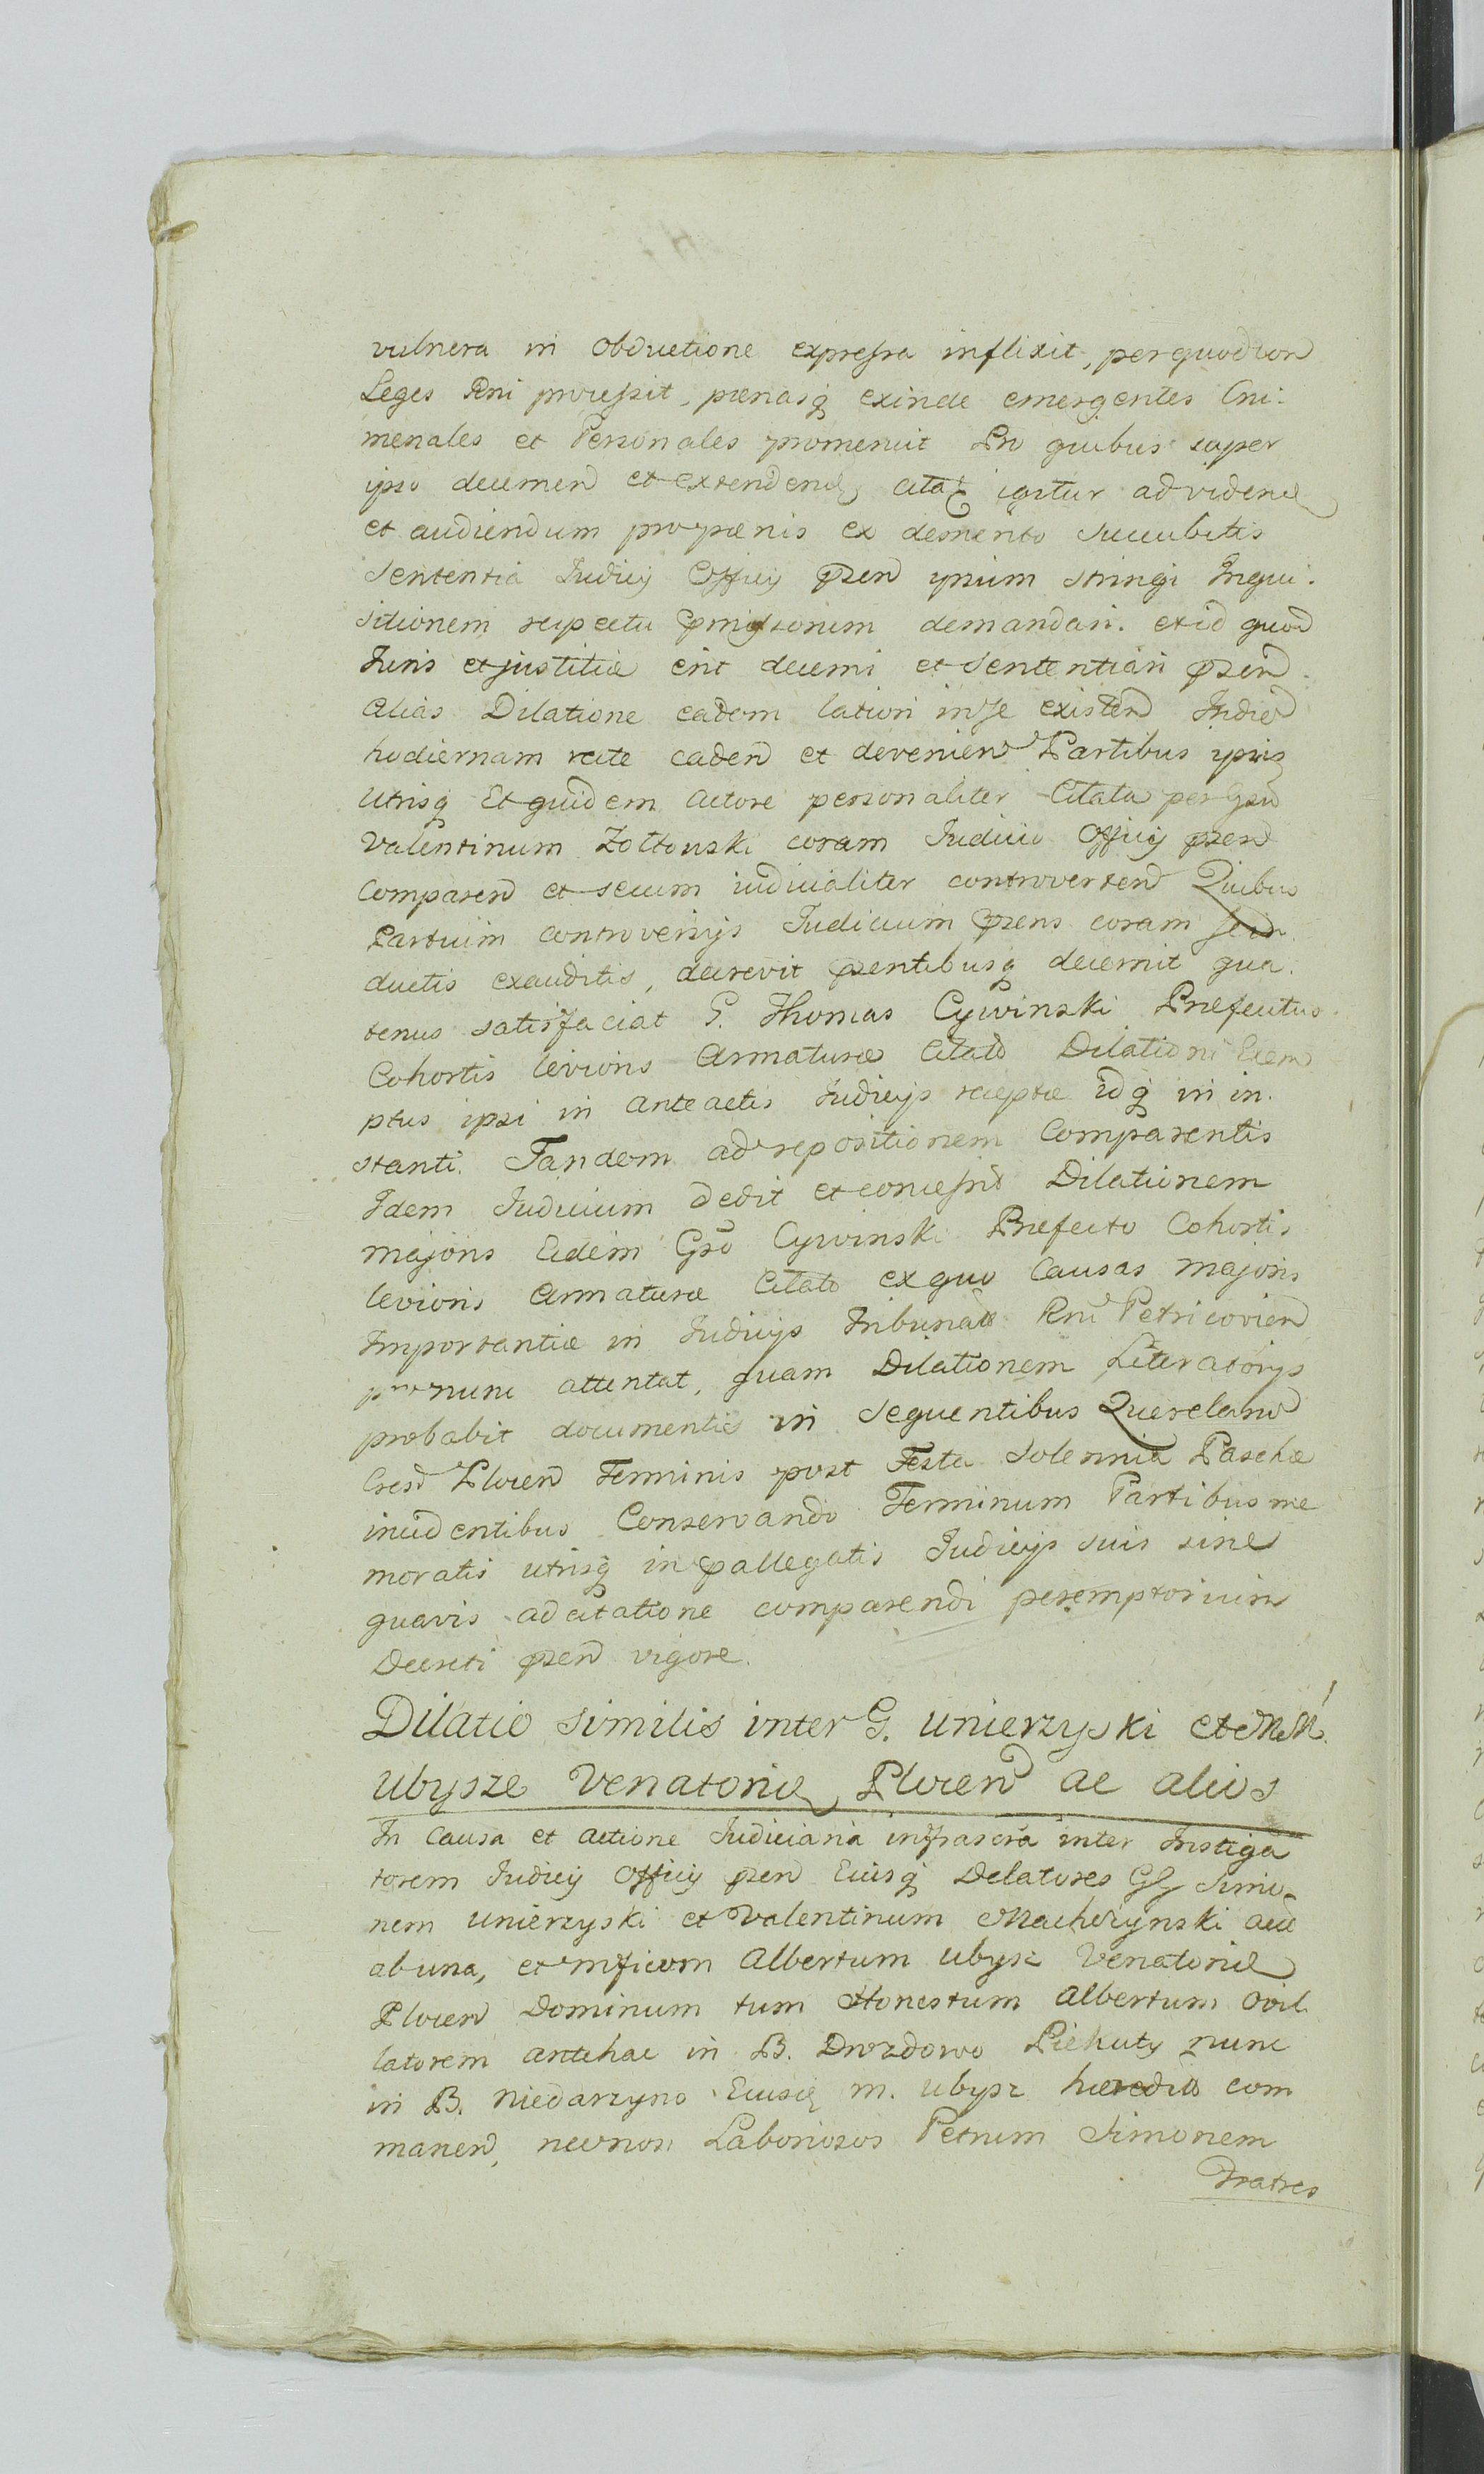 vulnera in Obductione expressa inflixit, per quod con
Leges Rni processit, pœnasq exinde emergentes Cri-
menales et Personales promeruit Pro quibus super
ipso decernen et extenden citat igitur ad viden
et audiendum pro pœnis ex demerito succubitis
Sententia Judicij Officij psen ipsum stringi Inqui-
sitionem respectu pmissorum demandari. et id quod
Juris et justitiæ erit decerni et Sententiari psen.
Alias Dilatione eadem latiori in se existen In diem
hodiernam recte caden et devenien Partibus ipsis
Utrisq Et quidem Actore personaliter Citato per Gsum
Valentinum Zołtowski coram Judicio Officij psen
Comparen et secum iudicialiter controverten Quibus
Partium controversijs Judicium psens coram se in
ductis exauditis, decrevit psentibusq decernit qua-
tenus satisfaciat G. Thomas Cywinski Præfectus
Cohortis levioris Armaturæ Citato Dilationi Exem
ptus ipsi in anteactis Judicijs receptæ idq in in-
stanti. Tandem ad repositionem Comparentis
Idem Judicium dedit et concessit Dilationem
majoris Eidem Gso Cywinski Præfecto Cohortis
levioris Armaturæ Citato ex quo Causas majoris
Importantiæ in Judicijs Tribunalis Rni Petricovien
pro nunc attentat, quam Dilationem Literatorijs
probabit documentis in sequentibus Querelarum
Cres Plocen Terminis post Festa Solennia Paschæ
incidentibus Conservando Terminum Partibus me
moratis utrisq in pallegatis Judicijs suis sine
quavis adcitatione comparendi peremptorium
Decreti psen vigore.
Dilatio similis inter G. Unierzyski et M.
Ubysze Venatorid Plocen ac alios
In Causa et Actione Judiciaria infrascra inter Instiga
torem Judicij Officij psen Eiusq Delatores GG Simo-
nem Unierzyski et Valentinum Machczynski
ab una, et mficum Albertum Ubysz Venatorid
Plocen Dominum tum Honestum Albertum Ovil
latorem antehac in B. Drozdowo Piekuty nunc
in B. Niedarzyno Eiusd m. Ubysz hæredit com
manen, necnon Laboriosos Petrum Simonem
Fratres